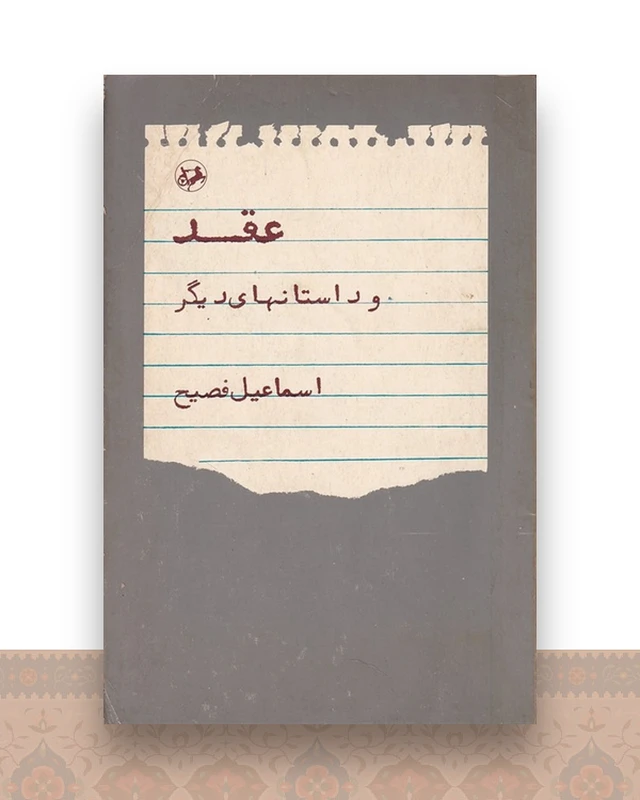 عقد
و داستانهای دیگر
اسماعیل فصیح